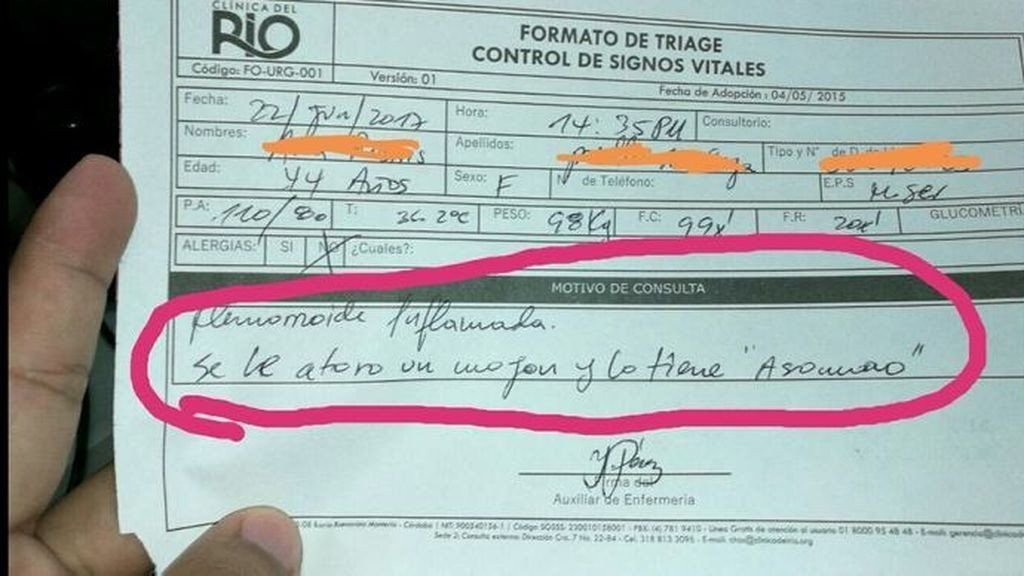 CLÍNICA DEL
RIO
FORMATO DE TRIAGE
CONTROL DE SIGNOS VITALES
Código: FO-URG-001 Versión: 01 Fecha de Adopción : 04/05/ 2015
Fecha: 22/Jun/2017 Hora: 14:35PM Consultorio:
Nombres: Apellidos: Tipo y N°
Edad: 44 Años Sexo: F N° de Teléfono: E.P.S
P.A: 110/80 T: 36.2ºc PESO: 98Kg F.C: 99x' F.R: 20x' GLUCOMETRÍ
ALERGIAS: SI NO ¿Cuales?:
MOTIVO DE CONSULTA
Hemorroide Inflamada.
Se le atoro un mojon y lo tiene "Asomao"
Y Pérez
Firma del
Auxiliar de Enfermeria
Montería - Córdoba | NIT: 900540156-1 | Código SGSSS: 230010158001 - PBX: (4) 781 9410 - Línea Gratis de atención al usuario 01 8000 95 48 48 - E-mail:
Sede 2: Consulta externa: Dirección Cra. 7 No. 22-84 - Cel. 318 813 3095 - E-mail: